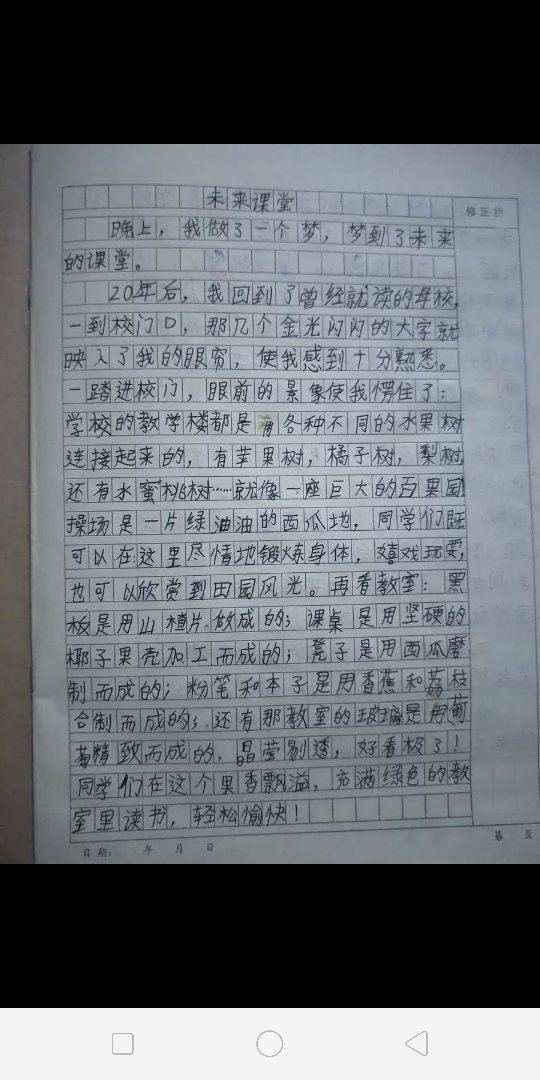 未来课堂
修正栏
晚上，我做了一个梦，梦到了未来
的课堂。
20年后，我回到了曾经就读的母校，
一到校门口，那几个金光闪闪的大字就
映入了我的眼帘，使我感到十分熟悉。
一踏进校门，眼前的景象使我愣住了：
学校的教学楼都是用各种不同的水果树
连接起来的，有苹果树，橘子树，梨树，
还有水蜜桃树……就像一座巨大的百果园
操场是一片绿油油的西瓜地，同学们既
可以在这里尽情地锻炼身体，嬉戏玩耍，
也可以欣赏到田园风光。再看教室：黑
板是用山楂片做成的；课桌是用坚硬的
椰子果壳加工而成的；凳子是用西瓜磨
制而成的；粉笔和本子是用香蕉和荔枝
合制而成的；还有那教室的玻璃是用葡
萄精致而成的，晶莹剔透，好看极了！
同学们在这个果香飘溢，充满绿色的教
室里读书，轻松愉快！
日期： 年 月 日
第 页